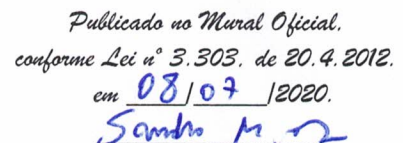 Publicado no Mural Oficial,
conforme Lei nº 3.303, de 20.4.2012.
em 08/07/2020.
Sandro M.